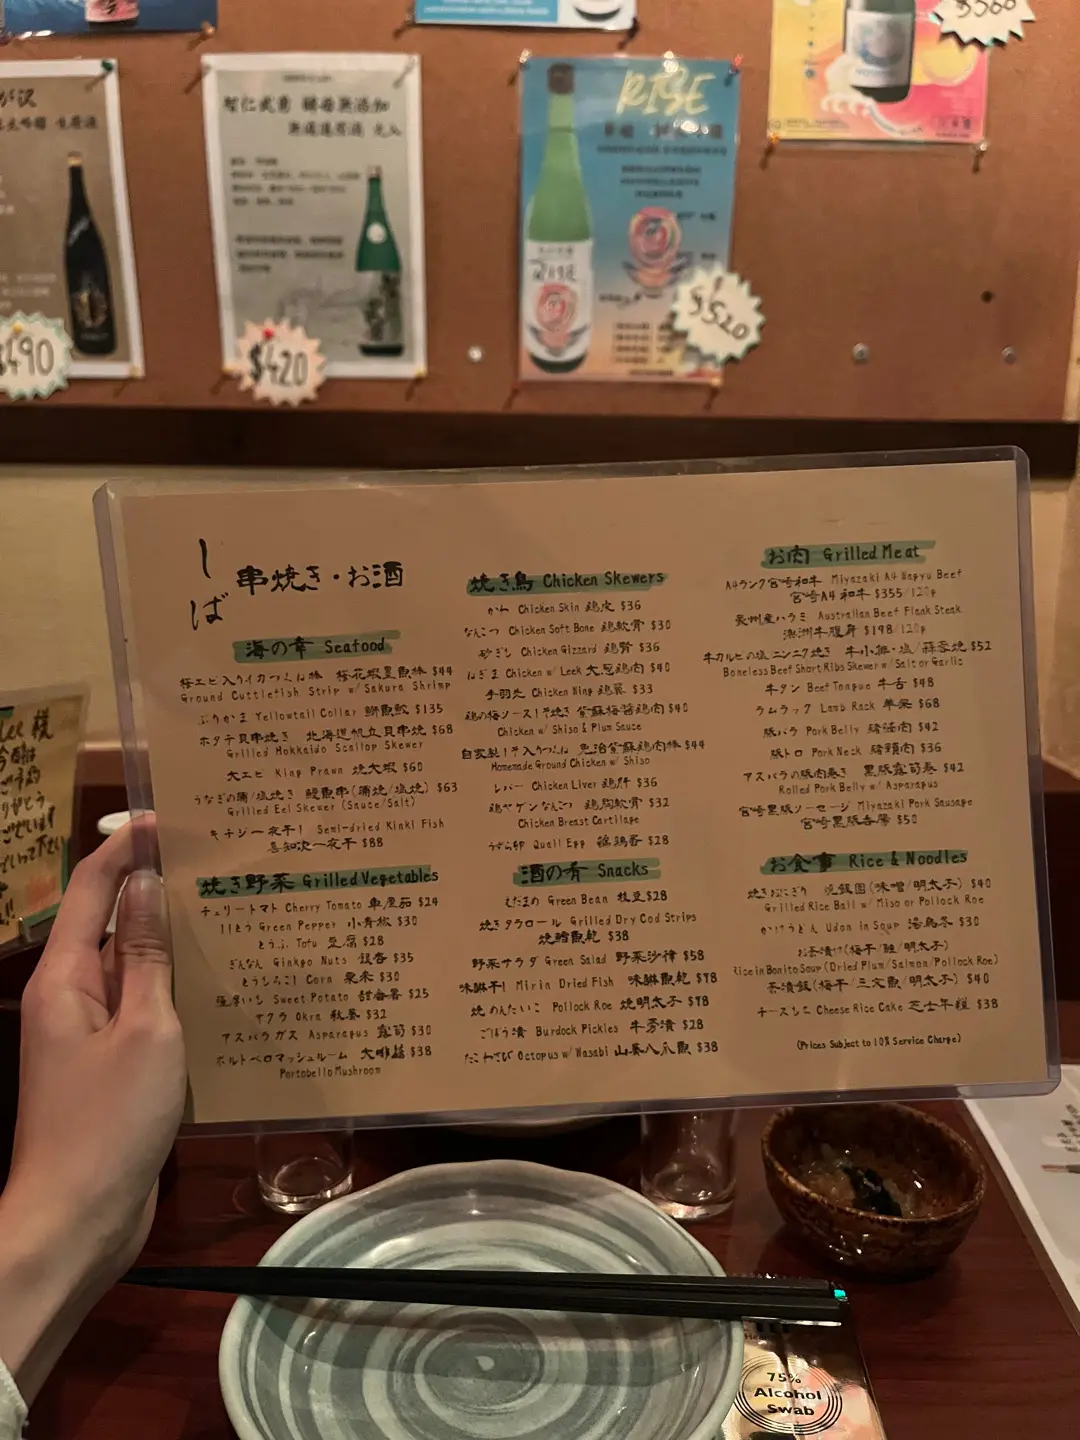 $360
智仁武勇
$490
$420
RISE
RISE
$520
様
しば
串焼き・お酒
海の幸 Seafood
桜エビ入りイカつくね棒 桜花蝦墨魚棒 $44
Ground Cuttlefish Strip w/ Sakura Shrimp
ぶりかま Yellowtail Collar 鰤魚鮫 $135
ホタテ貝串焼き 北海道帆立貝串燒 $68
Grilled Hokkaido Scallop Skewer
大エビ King Prawn 燒大蝦 $60
うなぎの蒲/塩焼き 鰻魚串(蒲燒/塩燒) $63
Grilled Eel Skewer (Sauce/Salt)
キチジ一夜干し Semi-dried Kinki Fish
喜知次一夜干 $88
焼き野菜 Grilled Vegetables
チェリートマト Cherry Tomato 車厘茄 $24
ししとう Green Pepper 小青椒 $30
とうふ Tofu 豆腐 $28
ぎんなん Ginkgo Nuts 銀杏 $35
とうもろこし Corn 粟米 $30
Sweet Potato 甜番薯 $25
オクラ Okra 秋葵 $32
アスパラガス Asparagus 露筍 $30
ポルトベロマッシュルーム 大啡菇 $38
Portobello Mushroom
焼き鳥 Chicken Skewers
かわ Chicken Skin 鷄皮 $36
なんこつ Chicken Soft Bone 鷄軟骨 $30
砂ぎも Chicken Gizzard 鷄腎 $36
ねぎま Chicken w/ Leek 大葱鷄肉 $40
手羽先 Chicken Wing 鷄翼 $33
鶏の梅ソースしそ焼き 紫蘇梅醬鷄肉 $40
Chicken w/ Shiso & Plum Sauce
自家製しそ入りつくね 免治紫蘇鷄肉棒 $44
Homemade Ground Chicken w/ Shiso
レバー Chicken Liver 鷄肝 $36
鶏ヤゲンなんこつ 鷄胸軟骨 $32
Chicken Breast Cartilage
うずら卵 Quail Egg 鵪鶉蛋 $28
酒の肴 Snacks
えだまめ Green Bean 枝豆 $28
焼きタラロール Grilled Dry Cod Strips
燒鱈魚乾 $38
野菜サラダ Green Salad 野菜沙律 $58
味醂干し Mirin Dried Fish 味醂魚乾 $48
焼めんたいこ Pollock Roe 燒明太子 $48
ごぼう漬 Burdock Pickles 牛蒡漬 $28
たこわさび Octopus w/ Wasabi 山葵八爪魚 $38
お肉 Grilled Meat
A4ランク宮崎和牛 Miyazaki A4 Wagyu Beef
宮崎A4和牛 $355/120g
豪州産ハラミ Australian Beef Flank Steak
澳洲牛腹身 $198/120g
牛カルビの塩/ニンニク焼き 牛小排・塩/蒜蓉燒 $52
Boneless Beef Short Ribs Skewer w/ Salt or Garlic
牛タン Beef Tongue 牛舌 $48
ラムラック Lamb Rack 羊架 $68
豚バラ Pork Belly 豬腩肉 $42
豚トロ Pork Neck 豬頸肉 $36
アスパラの豚肉巻き 黒豚露筍巻 $42
Rolled Pork Belly w/ Asparagus
宮崎黒豚ソーセージ Miyazaki Pork Sausage
宮崎黒豚香腸 $50
お食事 Rice & Noodles
焼きおにぎり 燒飯團(味噌/明太子) $40
Grilled Rice Ball w/ Miso or Pollock Roe
かけうどん Udon in Soup 湯烏冬 $30
お茶漬け(梅干/鮭/明太子)
Rice in Bonito Soup (Dried Plum/Salmon/Pollock Roe)
茶漬飯(梅干/三文魚/明太子) $40
チーズもち Cheese Rice Cake 芝士年糕 $38
(Prices Subject to 10% Service Charge)
75%
Alcohol
Swab